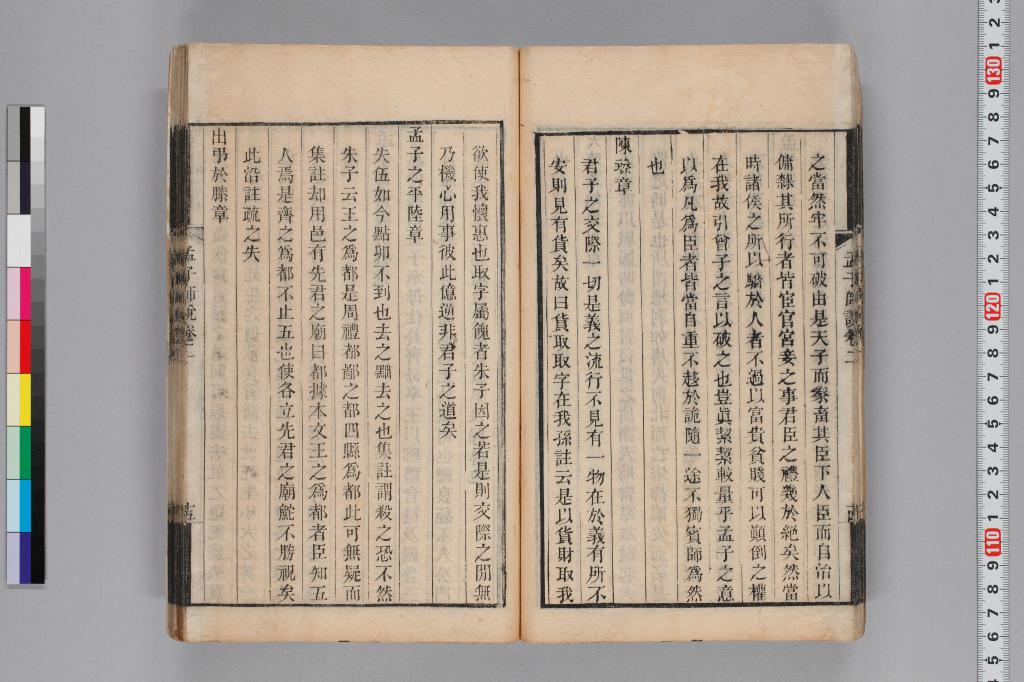 之當然牢不可破由是天子而豢畜其臣下人臣而自治以
傭隸其所行者皆宦官宮妾之事君臣之禮幾於絶矣然當
時諸侯之所以驕於人者不過以富貴貧賤可以顚倒之權
在我故引曾子之言以破之也豈眞絜絜較量乎孟子之意
以爲凡爲臣者皆當自重不趍於詭隨一途不獨賓師爲然
也
陳臻章
君子之交際一切是義之流行不見有一物在於義有所不
安則見有貨矣故曰貨取取字在我孫註云是以貨財取我
欲使我懷惠也取字屬餽者朱子因之若是則交際之閒無
乃機心用事彼此億逆非君子之道矣
孟子之平陸章
失伍如今點卯不到也去之黜去之也集註謂殺之恐不然
朱子云王之爲都是周禮都鄙之都四縣爲都此可無疑而
集註却用邑有先君之廟曰都據本文王之爲都者臣知五
人焉是齊之爲都不止五也使各立先君之廟能不勝祝矣
此沿註疏之失
出弔於滕章
孟子師說卷二
孟子師說卷二